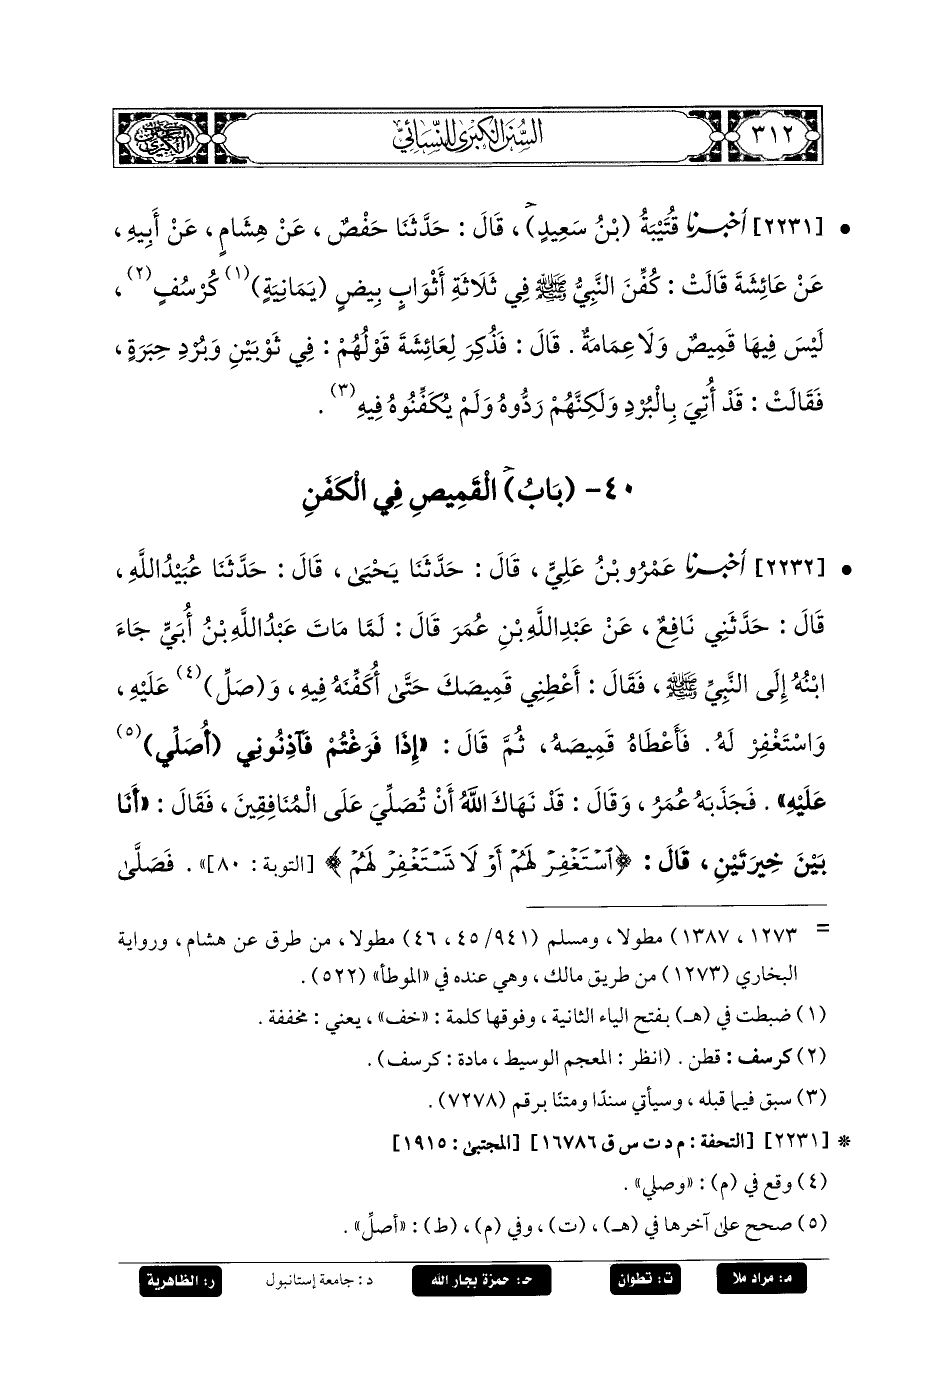 ٣١٢
السُّنَنُ الكُبْرَى لِلنَّسَائِيِّ
• [٢٢٣١] أخبرنا قُتَيْبَةُ (بْنُ سَعِيدٍ)، قَالَ: حَدَّثَنَا حَفْصٌ، عَنْ هِشَامٍ، عَنْ أَبِيهِ،
عَنْ عَائِشَةَ قَالَتْ: كُفِّنَ النَّبِيُّ ﷺ فِي ثَلَاثَةِ أَثْوَابٍ بِيضٍ (يَمَانِيَةٍ)(١) كُرْسُفٍ(٢)،
لَيْسَ فِيهَا قَمِيصٌ وَلَا عِمَامَةٌ. قَالَ: فَذُكِرَ لِعَائِشَةَ قَوْلُهُمْ: فِي ثَوْبَيْنِ وَبُرْدِ حِبَرَةٍ،
فَقَالَتْ: قَدْ أُتِيَ بِالْبُرْدِ وَلَكِنَّهُمْ رَدُّوهُ وَلَمْ يُكَفِّنُوهُ فِيهِ(٣).
٤٠- (بَابُ) الْقَمِيصِ فِي الْكَفَنِ
• [٢٢٣٢] أخبرنا عَمْرُو بْنُ عَلِيٍّ، قَالَ: حَدَّثَنَا يَحْيَى، قَالَ: حَدَّثَنَا عُبَيْدُاللَّهِ،
قَالَ: حَدَّثَنِي نَافِعٌ، عَنْ عَبْدِاللَّهِ بْنِ عُمَرَ قَالَ: لَمَّا مَاتَ عَبْدُاللَّهِ بْنُ أُبَيٍّ جَاءَ
ابْنُهُ إِلَى النَّبِيِّ ﷺ، فَقَالَ: أَعْطِنِي قَمِيصَكَ حَتَّى أُكَفِّنَهُ فِيهِ، وَ(صَلِّ)(٤) عَلَيْهِ،
وَاسْتَغْفِرْ لَهُ. فَأَعْطَاهُ قَمِيصَهُ، ثُمَّ قَالَ: «إِذَا فَرَغْتُمْ فَآذِنُونِي (أُصَلِّي)(٥)
عَلَيْهِ». فَجَذَبَهُ عُمَرُ، وَقَالَ: قَدْ نَهَاكَ اللَّهُ أَنْ تُصَلِّيَ عَلَى الْمُنَافِقِينَ، فَقَالَ: «أَنَا
بَيْنَ خِيرَتَيْنِ، قَالَ: ﴿ٱسْتَغْفِرْ لَهُمْ أَوْ لَا تَسْتَغْفِرْ لَهُمْ﴾ [التوبة: ٨٠]». فَصَلَّى
= ١٢٧٣، ١٣٨٧) مطولا، ومسلم (٩٤١/ ٤٥، ٤٦) مطولا، من طرق عن هشام، ورواية
البخاري (١٢٧٣) من طريق مالك، وهي عنده في «الموطأ» (٥٢٢).
(١) ضبطت في (هـ) بفتح الياء الثانية، وفوقها كلمة: «خف»، يعني: مخففة.
(٢) كرسف: قطن. (انظر: المعجم الوسيط، مادة: كرسف).
(٣) سبق فيما قبله، وسيأتي سندًا ومتنًا برقم (٧٢٧٨).
* [٢٢٣١] [التحفة: م د ت س ق ١٦٧٨٦] [المجتبى: ١٩١٥]
(٤) وقع في (م): «وصلي».
(٥) صحح على آخرها في (هـ)، (ت)، وفي (م)، (ط): «أصلِّ».
م: مراد ملا
ت: تطوان
حـ: حمزة بجار الله
د: جامعة إستانبول
ر: الظاهرية